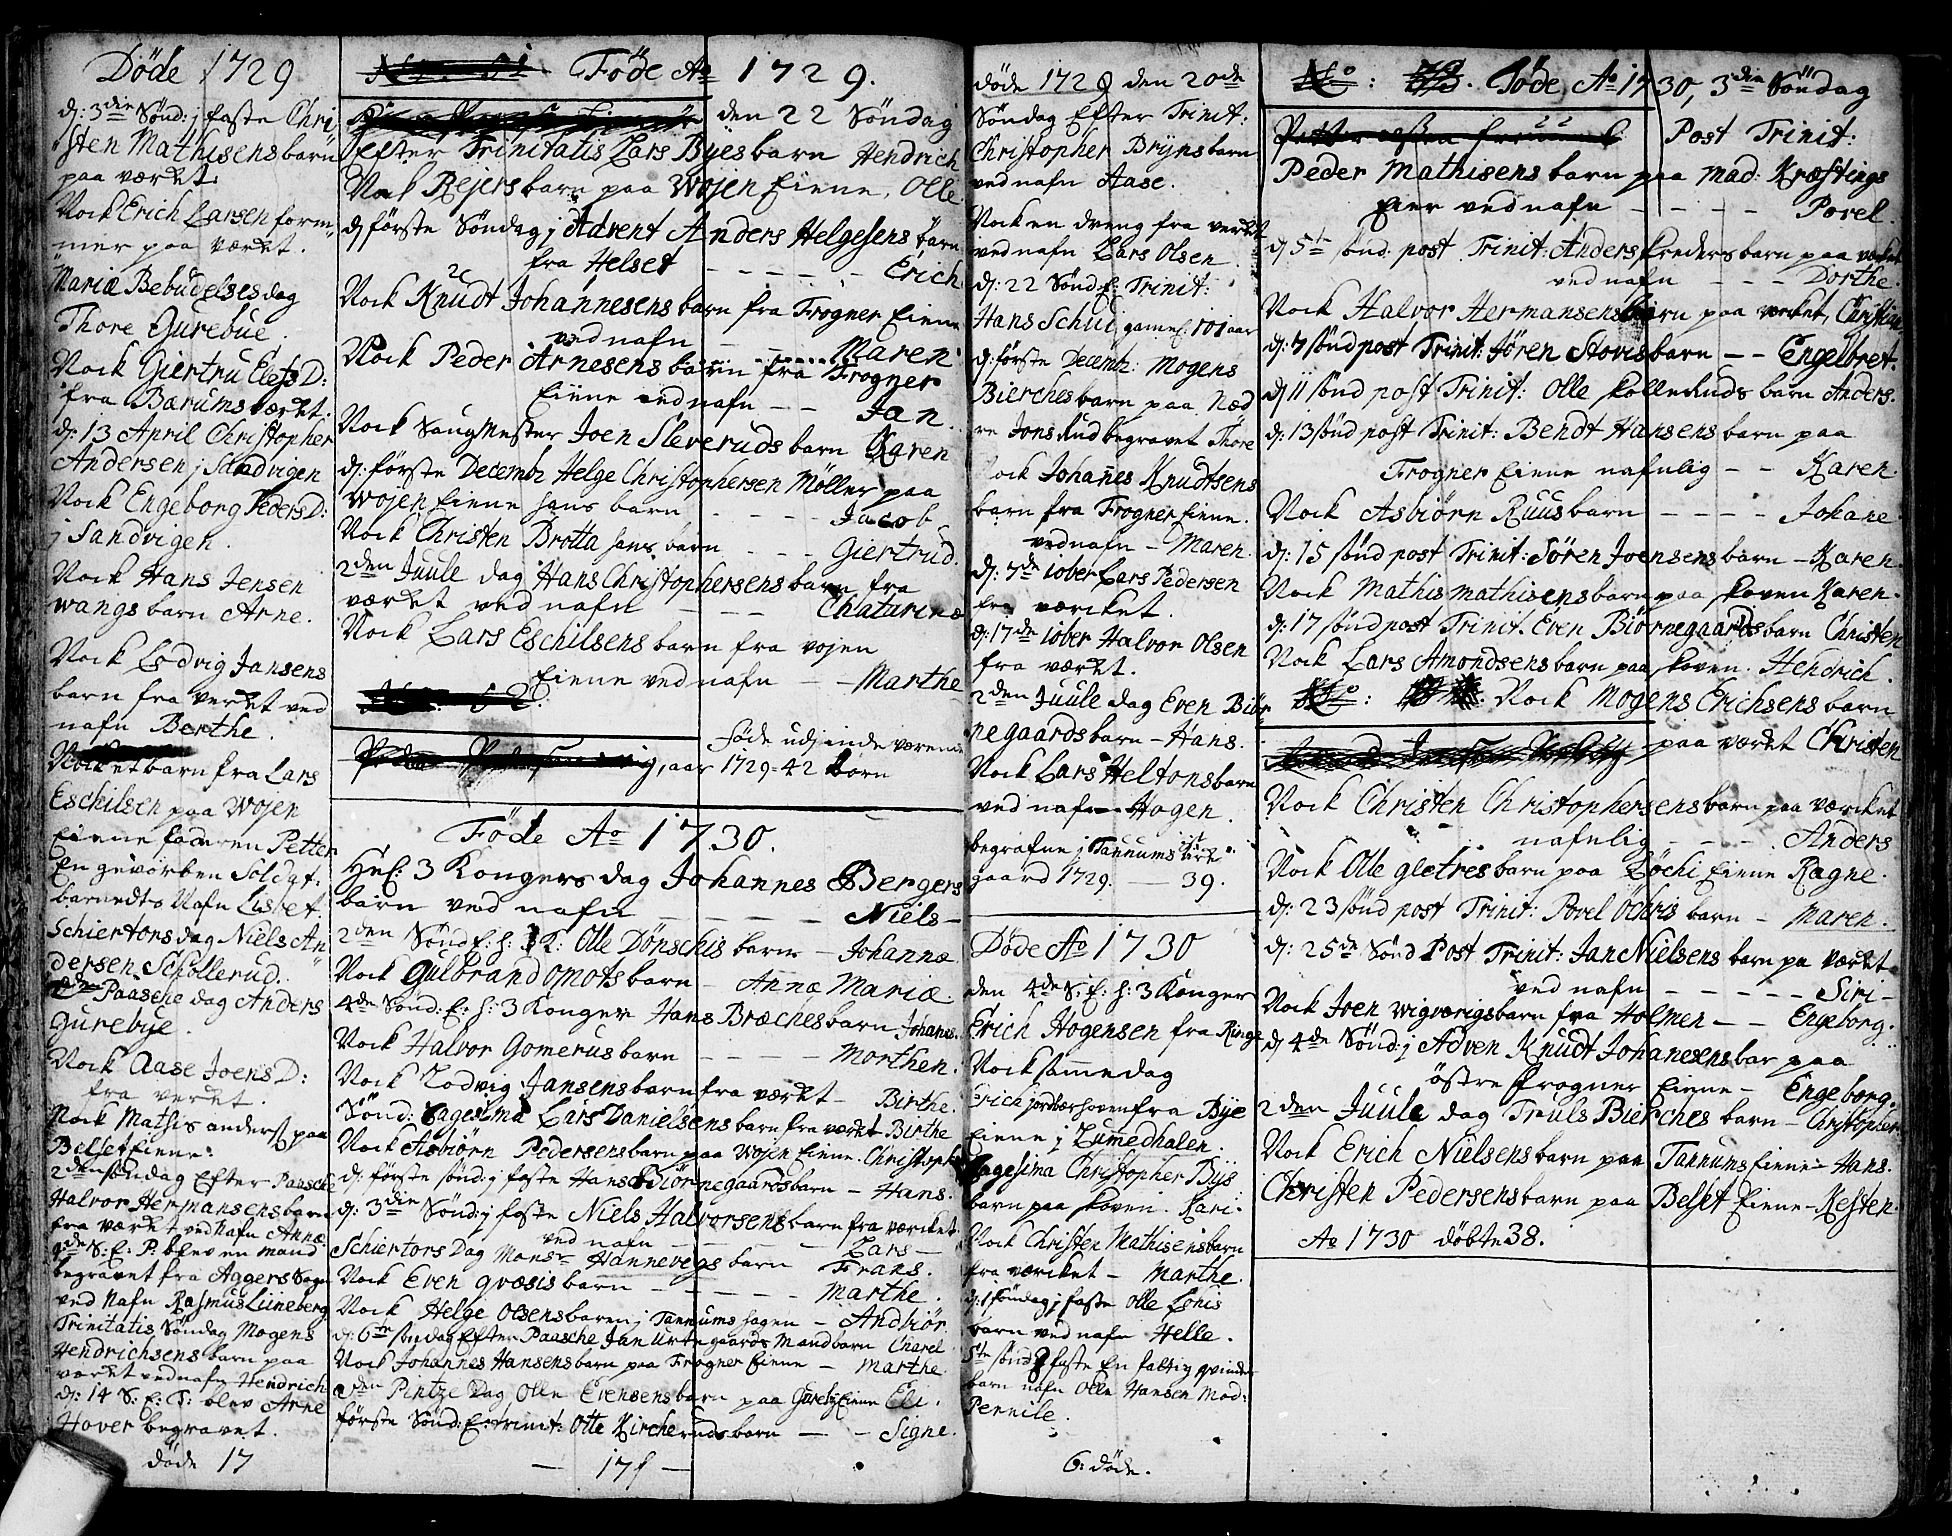 Døde 1729
dj: 3die Sønd: j faste Chri,
sten Mathisens barn
paa værket.
Nock Erich Larsen form,
mer paa værket.
Mariæ Bebudelses dag
Thore Gurebue.
Nock Giertru Elefs D:
fra Bærums værket.
dj: 13 April Christopher
Andersen j Sandvigen
Nock Engeborg Peders D:
j Sandvigen.
Nock Hans Jensen
wangs barn Arne.
Nock Lodvig Jansens
barn fra verket ved
nafn Berthe.
Nock et barn fra Lars
Eschilsen paa Wojen
Eiene faderen Petter
En gevorben Soldat.
barnedts Nafn Lisbet.
Schiertors dag Niels An
dersen Schollerud.
Paasche dag Anders
Gurebye.
Nock Aase Joens D:
fra verket.
Nock Mathis anders: paa
Belset Eiene.
2den søndag Efter Paasche
Halvor Hermansens barn
fra værket ved Nafn Annæ
de S: E: P: blev en mand
begravet fra Aggers Sogn
ved Nafn Rasmus Lüneberg
Trinitatis Søndag Mogens
Hendrichsens barn paa
værket ved nafn Hendrich
dj: 14 S: E: T: blev Arne
Hover begravet.
døde 17
Føde Ao 1729.
den 22 Søndag
Efter Trinitatis Lars Byes barn Hendrich
Nock Rejers barn paa Wojen Eiene, Olle
dj første Søndag j Advent Anders Helgesens barn
fra Helset - - - - - Erich
Nock Knudt Johannesens barn fra Frogner Eiene
ved nafn - - Maren
Nock Peder Arnesens barn fra Frogner
Eiene ved nafn - - Jan
Nock Saugmester Joen Sleveruds barn Karen
dj: første Decembr Helge Christophersen Møller paa
Wojen Eiene hans barn - - - - Jacob
Nock Christen Brotta hans barn - - - Giertrud.
2den Juule dag Hans Christophersens barn fra
værket ved nafn - - - Chatarinæ
Nock Lars Eschilsens barn fra vojen
Eiene ved nafn - - Marthe
føde udj inde værende
aar 1729 = 42 børn
Føde Ao 1730.
Hel: 3 Kongers dag Johannes Bergers
barn ved nafn - - - - Niels -
2den Sønd E: h: 3 K: Olle Dønschis barn - Johannæ
Nock Gulbrand Opnots barn - Annæ Mariæ
4de Sønd: E: h: 3 Konger Hans Bræches barn Johans.
Nock Halvor Gomerus barn - - - Morthen.
Nock Lodvig Jansens barn fra værket - Birthe.
Sønd: Sagesima Lars Danielsens barn fra værket Birthe
Nock Asbiørn Pedersens barn paa Wojen Eiene. Christoph
dj: første sønd: j faste Hans Biørnegaards barn - Hans.
dj: 3die Sønd: j faste Niels Halvorsens barn fra værcket
ved nafn - - - - Lars -
Schiertors Dag Monsr Hannevegs barn - Frans.
Nock Even Gvæsis barn - - - - Marthe.
Nock Helge Olsens barn j Tannums hagen - Andhiør
dj: 6te søndag Efter Paasche Jan Urtegaards Mand barn Charel
Nock Johannes Hansens barn paa Frogner Eiene - Marthe.
2den Pintze Dag Olle Evensens barn paa Gureby Eiene Eli.
første Sønd: E: trinit: Otte Kircheruds barn - - Signe.
døde 1729 den 20de
Søndag Efter Trinit:
Christopher Brijns barn
ved nafn Aase.
Nock en dreng fra verket
ved nafn Lars Olsen
dj: 22 Sønd E: Trinit:
Hans Schui gamel: 101 aar
dj: første Decembr: Mogens
Bierches barn paa Ned
re Jonsrud begravet Thore
Nock Johanes Knudtsens
barn fra Frogner Eiene.
ved nafn - Maren.
dj: 7de 10ber Lars Pedersen
fra værcket.
dj: 17de 10ber Halvor Olsen
fra værket.
2den Juule dag Even Biør
negaards barn - Hans.
Nock Lars Heltons barn
ved nafn - Hogen.
begrafne j Tannums Kirk
gaard 1729. - 39.
Døde Ao 1730
den 4de S: E: h: 3 Konger
Erich Hogensen fra Ringe
Nock samme dag
Erich jordbærhoven fra Bye
Eiene j Lumedhalen.
Sagesima Christopher Bijs
barn paa skoven. Kari.
Nock Christen Mathisens barn
fra værcket - Marthe.
dj: 1 søndag j faste Olle Lonis
barn ved nafn Helle.
5te sønd j faste En fattig qvindes
barn nafn Olle Hansen Mod:
Pernile.
6: døde.
No: Føde Ao 1730, 3die Søndag
Post Trinit:
Peder Mathisens barn paa Mad: Kræftings
Eier ved nafn - - - - Povel.
dj 5te sønd. post Trinit: Anders freders barn paa værket
ved nafn - - - Dorthe.
Nock Halvor Hermansens barn paa værket, Christian
dj: 7 sønd post Trinit: Jøren Stovis barn - - Engelbret.
dj 11 sønd post Trinit: Olle Kolleruds barn Anders.
dj: 13 sønd post Trinit: Bendt Hansens barn paa
Frogner Eiene nafnlig - - Karen.
Nock Asbiørn Ruus barn - - - - Johane
dj: 15 sønd post Trinit: Søren Joensens barn - Karen.
Nock Mathis mathisens barn paa skoven Karen.
dj: 17 sønd post Trinit. Even Biørnegaards barn Christen
Nock Lars Amondsens barn paa skoven. Hendrich.
No: Nock Mogens Erichsens barn
paa værket Christen
Nock Christen Christophersens barn paa værcket
nafnlig - - - . Anders
Nock Olle gletres barn paa Løchi Eiene Ragne.
dj: 23 sønd post Trinit: Povel Økris barn - Maren.
dj: 25de Sønd Post Trinit: Jan Nielsens barn pa værket
ved nafn - - - - - Siri -
Nock Joen wigværigs barn fra Holmen - - Engeborg.
dj 4de Sønd: j Adven Knudt Johanesens bar paa
østre Frogner Eiene - Engeborg.
2den Juule dag Truls Bierches barn - Christopher
Nock Erich Nielsens barn paa Tannums Eiene - Hans.
Christen Pedersens barn paa Belset Eiene - Kesten.
Ao 1730 døbte 38.